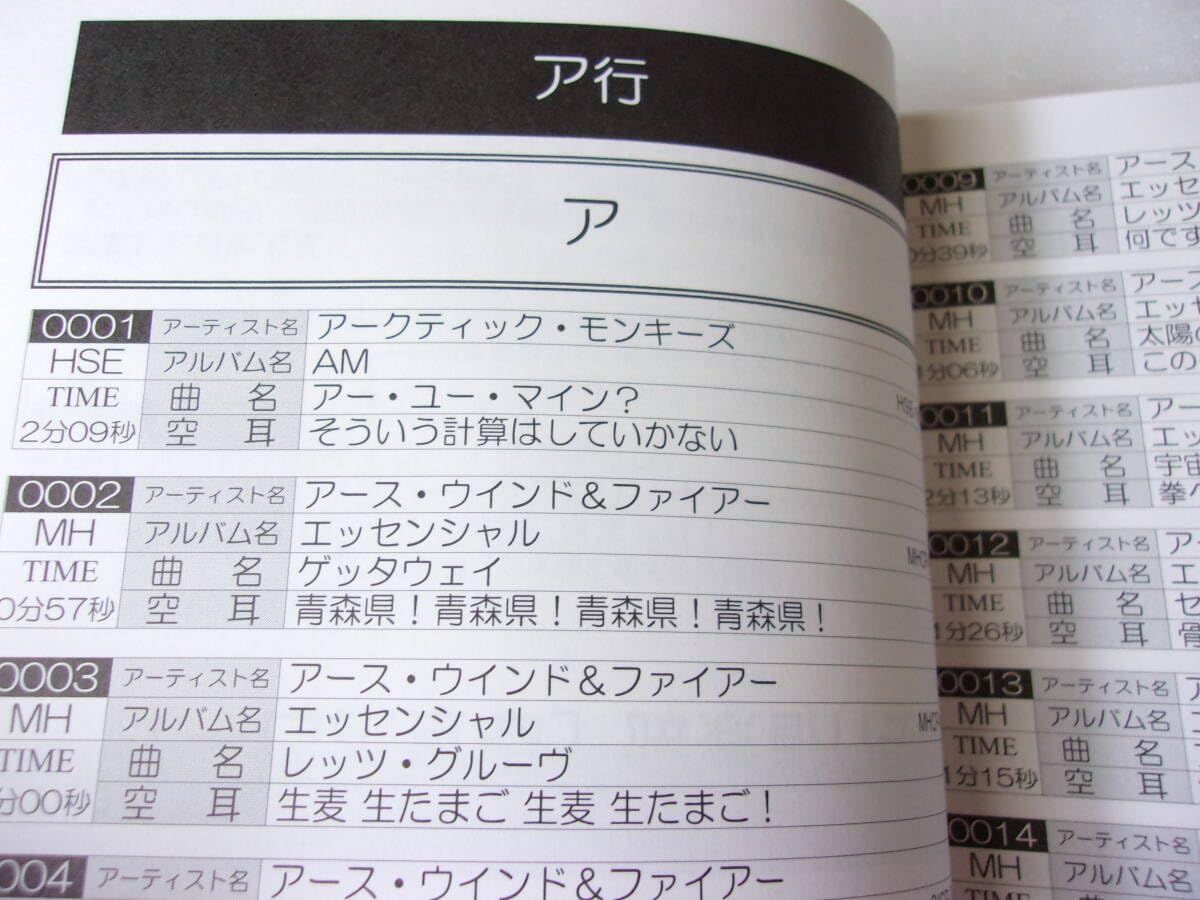 ア行
ア
0001 アーティスト名 アークティック・モンキーズ
HSE アルバム名 AM
TIME 曲名 アー・ユー・マイン?
2分09秒 空耳 そういう計算はしていかない
0002 アーティスト名 アース・ウインド&ファイアー
MH アルバム名 エッセンシャル
TIME 曲名 ゲッタウェイ
0分57秒 空耳 青森県!青森県!青森県!青森県!
0003 アーティスト名 アース・ウインド&ファイアー
MH アルバム名 エッセンシャル
TIME 曲名 レッツ・グルーヴ
分00秒 空耳 生麦 生たまご 生麦 生たまご!
004 アーティスト名 アース・ウインド&ファイアー
0009 アーティスト名 アース
MH アルバム名 エッセ
TIME 曲名 レッツ
0分39秒 空耳 何です
0010 アーティスト名 アース
MH アルバム名 エッセ
TIME 曲名 太陽
1分06秒 空耳 この
0011 アーティスト名 アー
MH アルバム名 エッ
TIME 曲名 宇宙
2分13秒 空耳 拳
0012 アーティスト名 ア
MH アルバム名 エ
TIME 曲名 セ
1分26秒 空耳 骨
0013 アーティスト名
MH アルバム名
TIME 曲名
1分15秒 空耳
0014 アーティスト名
MH アルバム名
TIME